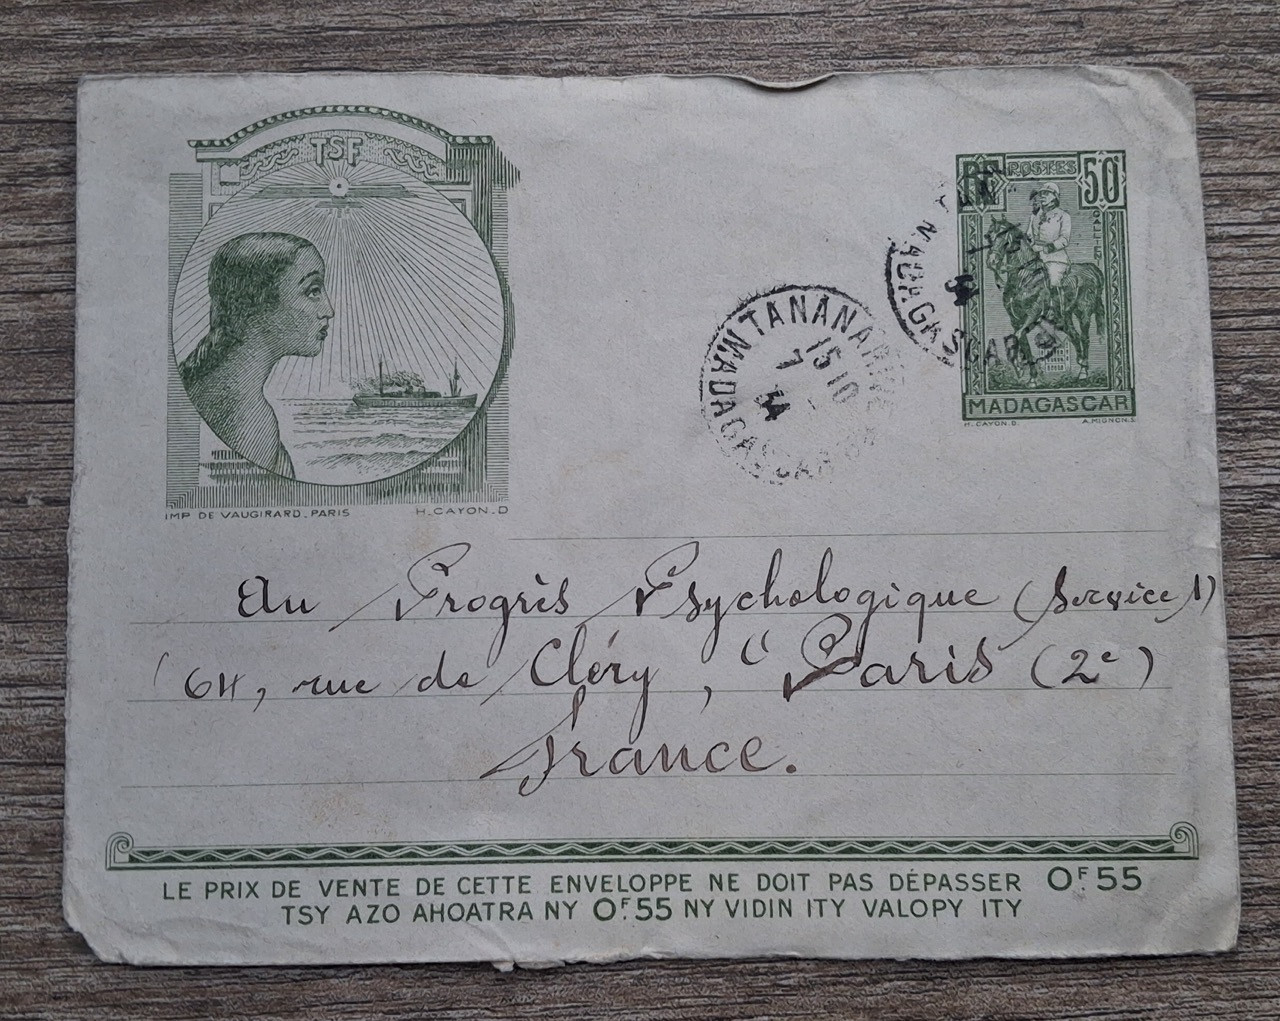 TSF
RF POSTES 50c
GALLIENI
MADAGASCAR
H. CAYON.D. A.MIGNON.S
TANANARIVE
15 10
7
MADAGASCAR
MADAGASCAR
IMP DE VAUGIRARD. PARIS H. CAYON. D
Au Progrès Psychologique (Service A)
64, rue de Cléry, " Paris (2e)
France.
LE PRIX DE VENTE DE CETTE ENVELOPPE NE DOIT PAS DÉPASSER 0F.55
TSY AZO AHOATRA NY 0F.55 NY VIDIN ITY VALOPY ITY